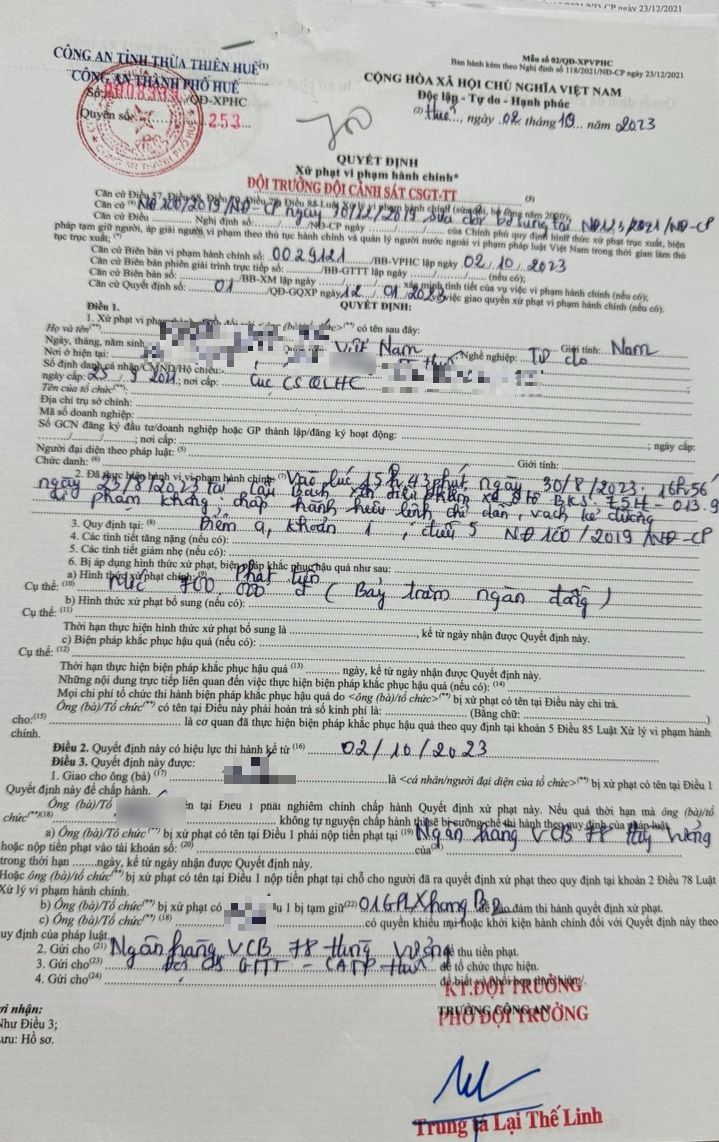 NĐ-CP ngày 23/12/2021
Mẫu số 02/QĐ-XPVPHC
Ban hành kèm theo Nghị định số 118/2021/NĐ-CP ngày 23/12/2021
CÔNG AN TỈNH THỪA THIÊN HUẾ(1)
CÔNG AN THÀNH PHỐ HUẾ
CỘNG HÒA XÃ HỘI CHỦ NGHĨA VIỆT NAM
Độc lập - Tự do - Hạnh phúc
Số: /QĐ-XPHC
Quyển số: 253
(2) Huế, ngày 02 tháng 10 năm 2023
QUYẾT ĐỊNH
Xử phạt vi phạm hành chính*
ĐỘI TRƯỞNG ĐỘI CẢNH SÁT CSGT-TT (3)
Căn cứ Điều 57, Điều 68, Điều 85 Luật Xử lý vi phạm hành chính (sửa đổi, bổ sung năm 2020);
Căn cứ (4) NĐ 100/2019/NĐ-CP ngày 30/12/2019 sửa đổi bổ sung tại NĐ123/2021/NĐ-CP
Căn cứ Điều Nghị định số: /NĐ-CP ngày ..../..../...., của Chính phủ quy định hình thức xử phạt trục xuất, biện
pháp tạm giữ người, áp giải người vi phạm theo thủ tục hành chính và quản lý người nước ngoài vi phạm pháp luật Việt Nam trong thời gian làm thủ
tục trục xuất; (7)
Căn cứ Biên bản vi phạm hành chính số: 0029121 /BB-VPHC lập ngày 02/10/2023
Căn cứ Biên bản phiên giải trình trực tiếp số: /BB-GTTT lập ngày ..../..../.... (nếu có);
Căn cứ Biên bản số: /BB-XM lập ngày xác minh tình tiết của vụ việc vi phạm hành chính (nếu có);
Căn cứ Quyết định số: 01 /QĐ-GQXP ngày 12/01/2023 việc giao quyền xử phạt vi phạm hành chính (nếu có).
QUYẾT ĐỊNH:
Điều 1.
1. Xử phạt vi phạm hành chính đối với <ông (bà)/tổ chức>(**) có tên sau đây:
Họ và tên(**): Giới tính: Nam
Ngày, tháng, năm sinh Việt Nam Nghề nghiệp: Tự do
Nơi ở hiện tại:
Số định danh cá nhân/CMND/Hộ chiếu:
ngày cấp: 25/9/2021; nơi cấp: Cục CS QLHC
Tên của tổ chức(**):
Địa chỉ trụ sở chính:
Mã số doanh nghiệp:
Số GCN đăng ký đầu tư/doanh nghiệp hoặc GP thành lập/đăng ký hoạt động: ; ngày cấp:
..../..../....; nơi cấp:
Người đại diện theo pháp luật: (5) Giới tính:
Chức danh: (6)
2. Đã thực hiện hành vi vi phạm hành chính (7) Vào lúc 15h43 phút, ngày 30/8/2023. 16h56'
ngày 23/8/2023 tại cầu Bạch điều khiển xe ô tô BKS: 75H - 013.9
vi phạm không chấp hành hiệu lệnh chỉ dẫn, vạch kẻ đường
3. Quy định tại: (8) Điểm a, khoản 1, điều 5 NĐ 100/2019/NĐ-CP
4. Các tình tiết tăng nặng (nếu có):
5. Các tình tiết giảm nhẹ (nếu có):
6. Bị áp dụng hình thức xử phạt, biện pháp khắc phục hậu quả như sau:
a) Hình thức xử phạt chính: (9) Phạt tiền
Cụ thể: (10) Mức 700.000 đ (Bảy trăm ngàn đồng)
b) Hình thức xử phạt bổ sung (nếu có):
Cụ thể: (11)
Thời hạn thực hiện hình thức xử phạt bổ sung là , kể từ ngày nhận được Quyết định này.
c) Biện pháp khắc phục hậu quả (nếu có):
Cụ thể: (12)
Thời hạn thực hiện biện pháp khắc phục hậu quả (13) ngày, kể từ ngày nhận được Quyết định này.
Những nội dung trực tiếp liên quan đến việc thực hiện biện pháp khắc phục hậu quả (nếu có): (14)
Mọi chi phí tổ chức thi hành biện pháp khắc phục hậu quả do <ông (bà)/tổ chức>(**) bị xử phạt có tên tại Điều này chi trả.
Ông (bà)/Tổ chức(**) có tên tại Điều này phải hoàn trả số kinh phí là: (Bằng chữ: )
cho:(15) là cơ quan đã thực hiện biện pháp khắc phục hậu quả theo quy định tại khoản 5 Điều 85 Luật Xử lý vi phạm hành
chính.
Điều 2. Quyết định này có hiệu lực thi hành kể từ (16) 02/10/2023
Điều 3. Quyết định này được:
1. Giao cho ông (bà) (17) là <cá nhân/người đại diện của tổ chức>(**) bị xử phạt có tên tại Điều 1
Quyết định này để chấp hành.
Ông (bà)/Tổ chức(**)(18) tên tại Điều 1 phải nghiêm chỉnh chấp hành Quyết định xử phạt này. Nếu quá thời hạn mà ông (bà)/tổ
chức(**)(18) không tự nguyện chấp hành thì sẽ bị cưỡng chế thi hành theo quy định của pháp luật.
a) Ông (bà)/Tổ chức(**) bị xử phạt có tên tại Điều 1 phải nộp tiền phạt tại (19) Ngân hàng VCB 78 Hùng Vương
hoặc nộp tiền phạt vào tài khoản số: (20) của(21)
trong thời hạn ........ngày, kể từ ngày nhận được Quyết định này.
Hoặc ông (bà)/tổ chức(**) bị xử phạt có tên tại Điều 1 nộp tiền phạt tại chỗ cho người đã ra quyết định xử phạt theo quy định tại khoản 2 Điều 78 Luật
Xử lý vi phạm hành chính.
b) Ông (bà)/Tổ chức(**) bị xử phạt có 1 bị tạm giữ(22) 01 GPLX hạng để bảo đảm thi hành quyết định xử phạt.
c) Ông (bà)/Tổ chức(**) (18) có quyền khiếu nại hoặc khởi kiện hành chính đối với Quyết định này theo
quy định của pháp luật.
2. Gửi cho (21) Ngân hàng VCB 78 Hùng Vương để thu tiền phạt.
3. Gửi cho(23) Đội CS GTTT - CATP Huế để tổ chức thực hiện.
4. Gửi cho(24) để biết và phối hợp thực hiện./.
KT.ĐỘI TRƯỞNG
TRƯỞNG CÔNG AN
PHÓ ĐỘI TRƯỞNG
Nơi nhận:
Như Điều 3;
Lưu: Hồ sơ.
Trung tá Lại Thế Linh